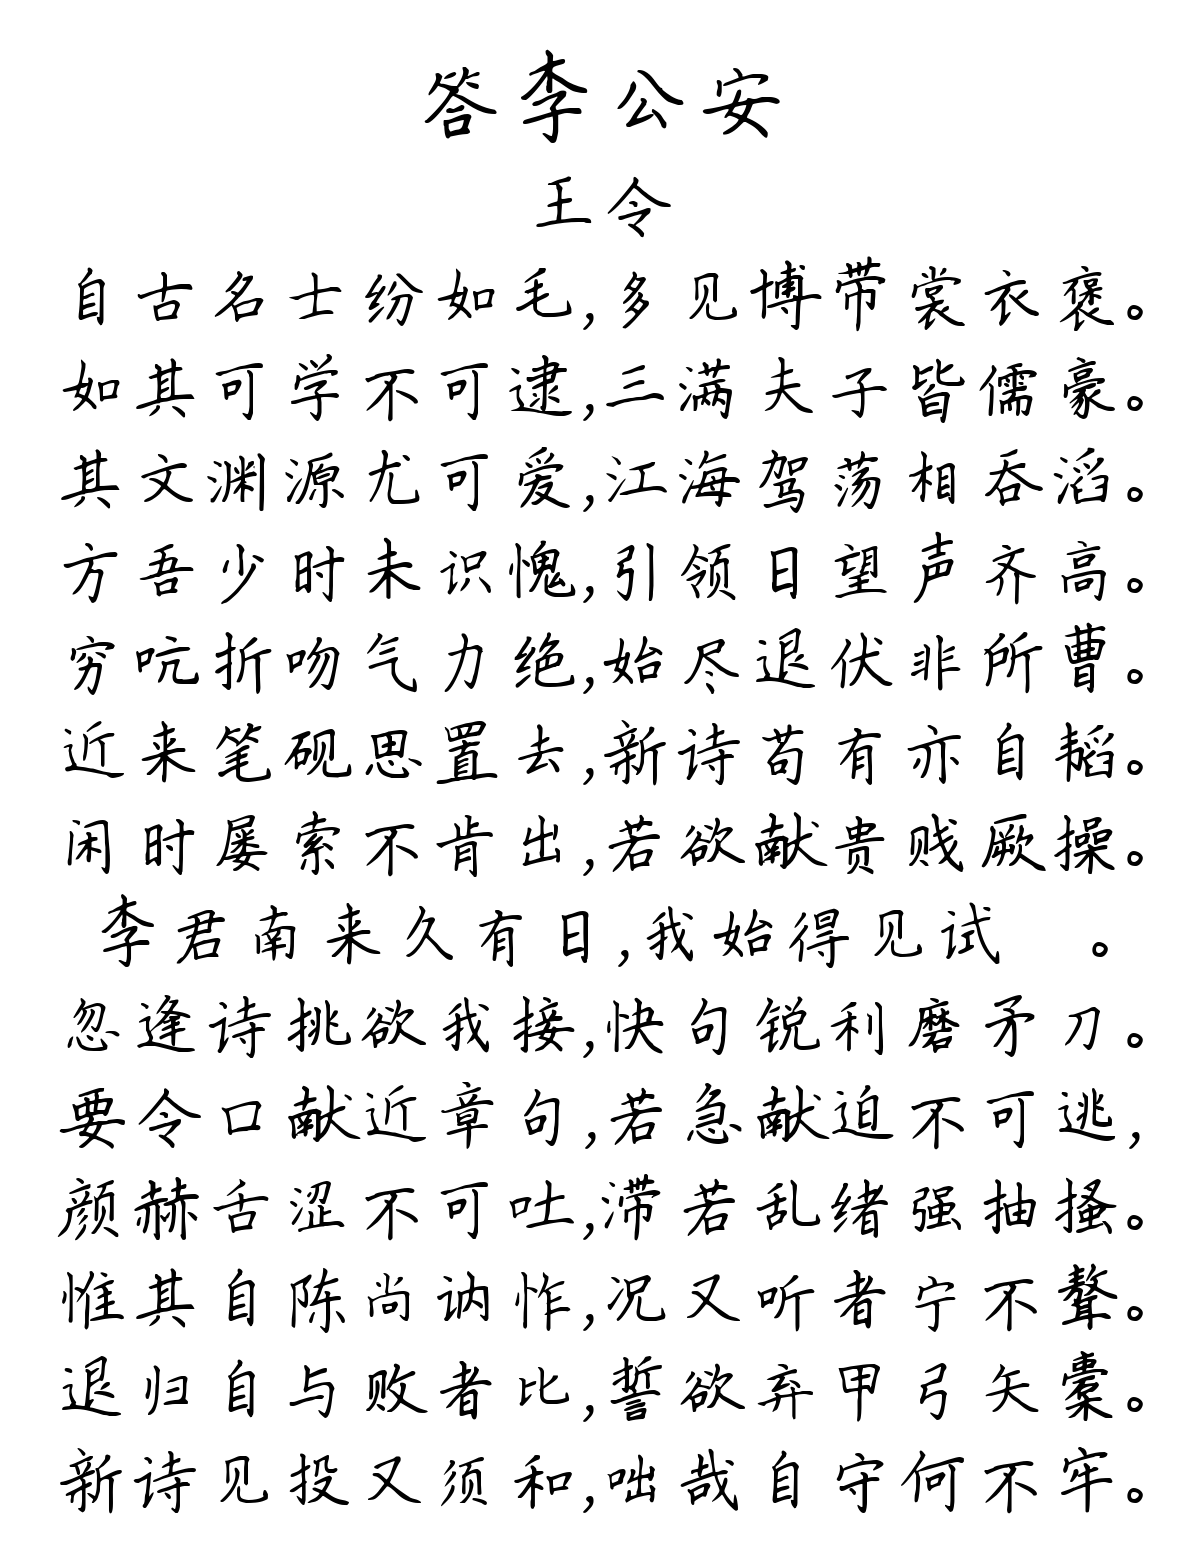 答李公安
王令
自古名士纷如毛,多见博带裳衣褒。
如其可学不可逮,三满夫子皆儒豪。
其文渊源尤可爱,江海驾荡相吞滔。
方吾少时未识愧,引领日望声齐高。
穷吭折吻气力绝,始尽退伏非所曹。
近来笔砚思置去,新诗苟有亦自韬。
闲时屡索不肯出,若欲献贵贱厥操。
李君南来久有日,我始得见试 。
忽逢诗挑欲我接,快句锐利磨矛刀。
要令口献近章句,若急献迫不可逃,
颜赫舌涩不可吐,滞若乱绪强抽搔。
惟其自陈尚讷怍,况又听者宁不聱。
退归自与败者比,誓欲弃甲弓矢櫜。
新诗见投又须和,咄哉自守何不牢。